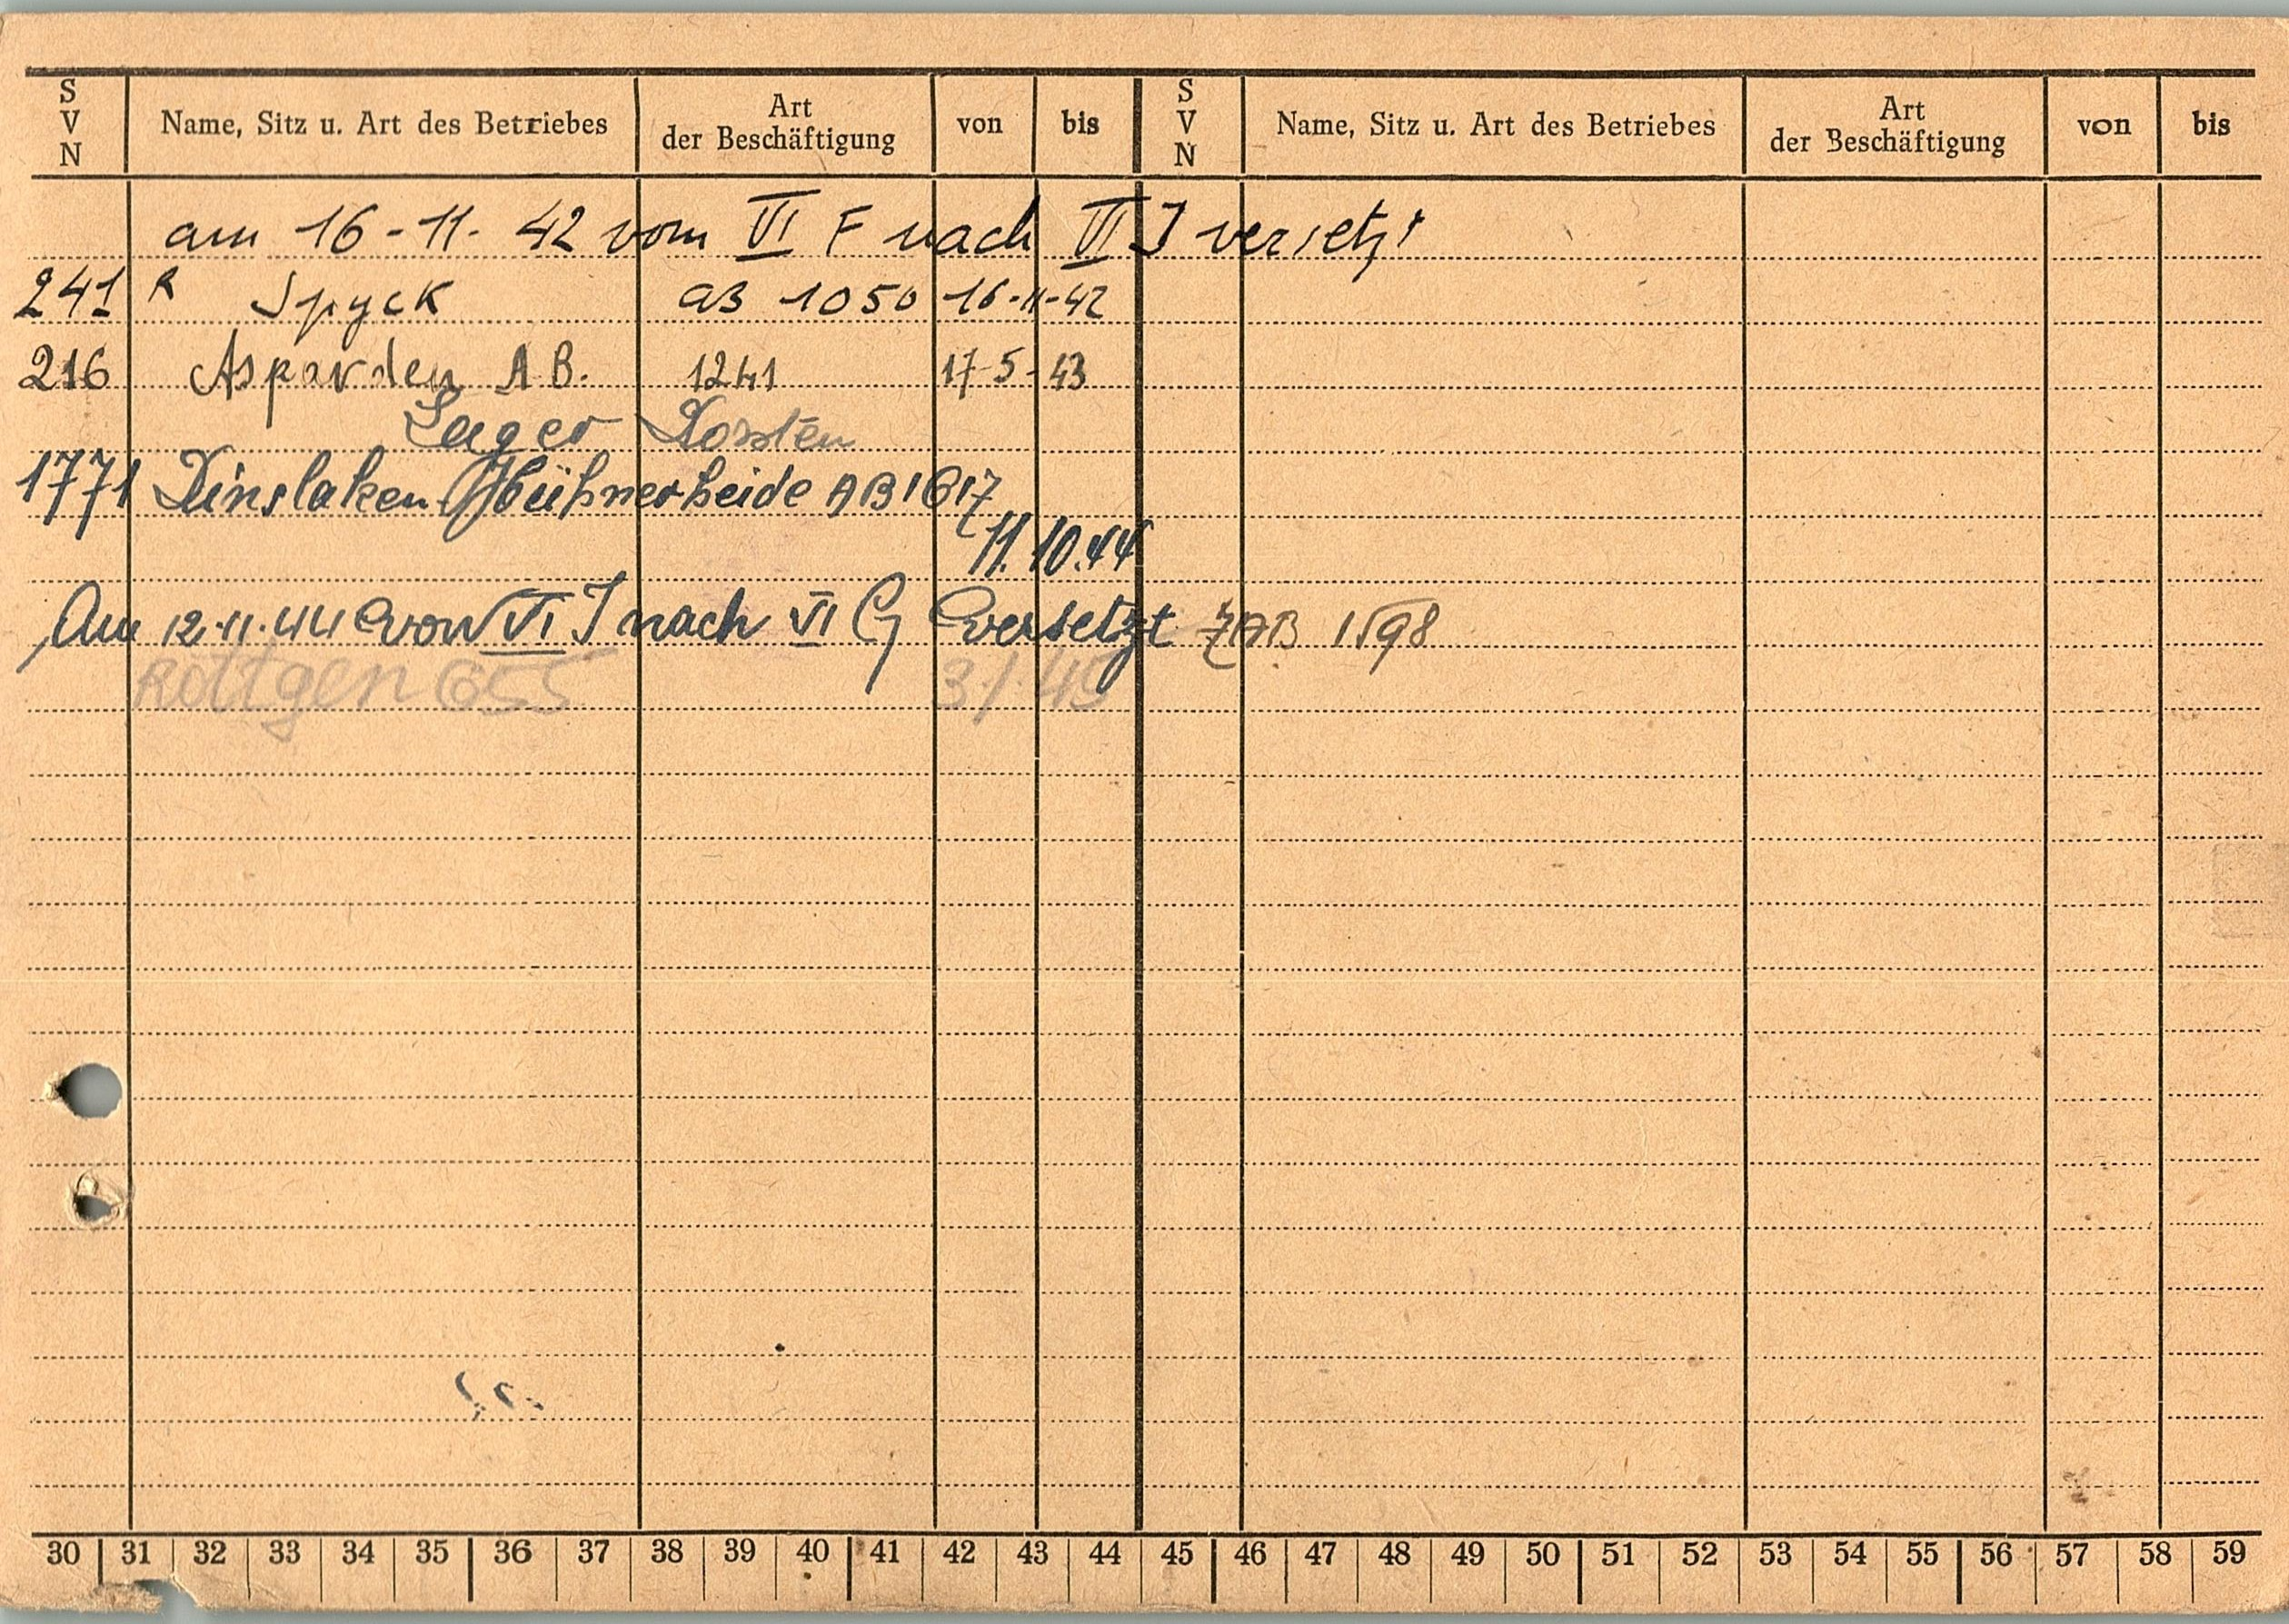 S V N Name, Sitz u. Art des Betriebes Art der Beschäftigung von bis S V N Name, Sitz u. Art des Betriebes Art der Beschäftigung von bis
am 16-11-42 vom VI F nach VI J versetzt
241 R Spyck aB 1050 16-11-42
216 Asparden A B. 1241 17-5-43
Lager Dorsten
1771 Dinslaken Hühnerheide AB 1617
11.10.44
Am 12.11.44 von VI J nach VI G versetzt ZAB 1598
Röttgen 655 3/1.45
30 31 32 33 34 35 36 37 38 39 40 41 42 43 44 45 46 47 48 49 50 51 52 53 54 55 56 57 58 59